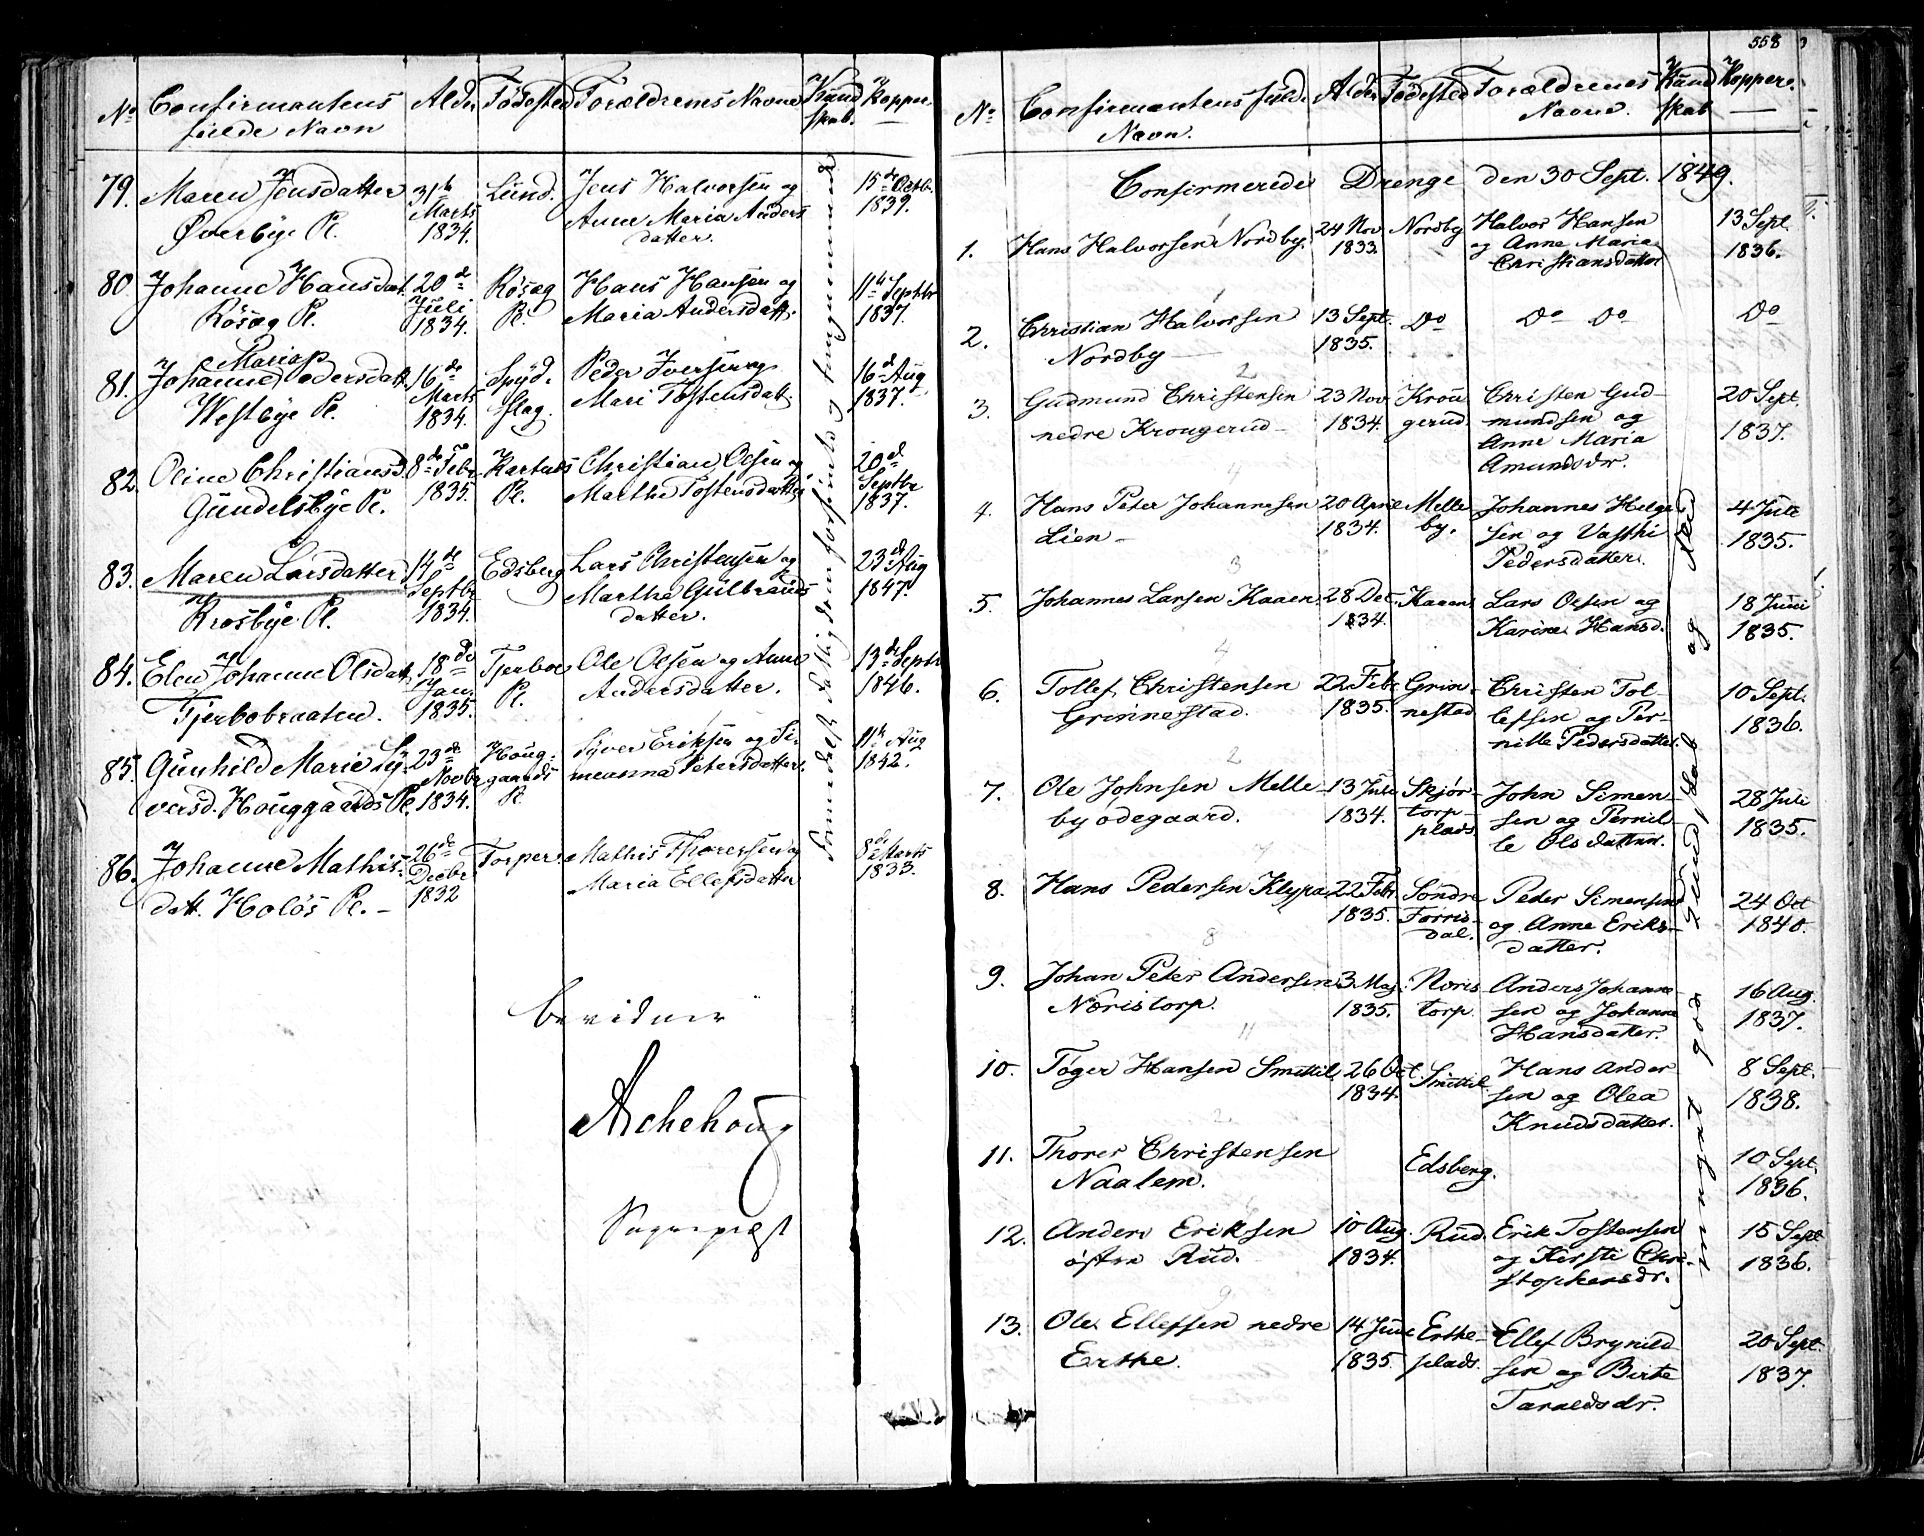 No Confirmantens fulde Navn Alder Fødested Forældrenes Navne Kundskab. Kopper.
79. Maren Jensdatter 31te Lund. Jens Halvorsen og 15de Octb.
Øverbye Pl. Marts 1834. Anne Maria Andersdatter. 1839.
80. Johanne Hansdat. 20de Røsæg Hans Hansen og 11te Septbr
Røsæg Pl. Juli 1834. Pl. Maria Andersdatt. 1837.
Maria
81. Johanne Pedersdatt. 16de Spyd- Peder Iversen og 16de Aug
Westbye Pl. Marts 1834. Mari Tostensdatt. 1837.
82. Oline Christiansd. 8de Febr Christian Olsen og 20de
Gundelsbye Pl. 1835. Pl. Marthe Tostensdatter Septbr 1837.
83. Maren Larsdatter 14de Edsberg Lars Christensen og 23de Aug
Krosbye Pl. Septbr 1834. Marthe Gulbrandsdatter. 1847.
84. Elen Johanne Olsdatt. 18de Tjerboe Ole Olsen og Anne 13de Septbr
Tjerbobraaten. Jan. 1835. Pl. Andersdatter. 1846.
85. Gunhild Marie Sy- 23de Houg- Syver Eriksen og Si- 11te Aug
versd. Houggaards Pl. Novbr 1834. gaards Pl. meanna Petersdatter. 1842.
86. Johanne Mathis- 26de Torper. Mathis Thoresen og 8de Marts
datt. Holøs Pl. Decbr 1832 Maria Ellefsdatter 1833.
Bevidner
Aschehoug
Sognepræst
558
No Confirmantens fulde Navn. Alder Fødested Forældrenes Navne. Kundskab Kopper.
Confirmerede Drenge den 30 Sept. 1849.
1. Hans Halvorsen Nordby. 24 Nov 1833. Nordby Halvor Hansen 13 Sept.
og Anne Maria 1836.
Christiansdatter
2. Christian Halvorsen 13 Sept. Do Do Do Do
Nordby 1835.
3. Gudmund Christensen 23 Nov Krou Christen Gud- 20 Sept.
nedre Krougerud 1834. gerud. mundsen og 1837.
Anne Maria
Amundsdr.
4. Hans Peter Johannesen 20 April Melle Johannes Helge 4 Juli
Lien 1834. by. sen og Vasthi 1835.
Pedersdatter.
5. Johannes Larsen Kaaen. 28 Dec. Kaaen Lars Olsen og 18 Juni
1834. Karine Hansd. 1835.
6. Tollef Christensen 22 Febr Grin- Christen Tol- 10 Sept.
Grinnestad. 1835. nestad lefsen og Per- 1836.
nille Pedersdatter.
7. Ole Johnsen Melle- 13 Juli Skjør- John Simen- 28 Juli
by ødegaard. 1834. torp- sen og Pernil- 1835.
plads le Olsdatter.
8. Hans Pedersen Klypa 22 Febr Søndre Peder Simensen 24 Oct
1835. Førris- og Anne Eriks- 1840.
dal. datter.
9. Johan Peter Andersen 3 Maj Næris Anders Johanne- 16 Aug.
Næristorp. 1835. torp sen og Johanne 1837.
Hansdatter.
10. Toger Hansen Smettil 26 Oct. Smettil Hans Ander 8 Sept.
1834. sen og Olea 1838.
Knudsdatter.
11. Thorer Christensen Edsberg. 10 Sept.
Naalem. 1836.
12. Anders Eriksen 10 Aug. Rud. Erik Tostensen 15 Sept
østre Rud. 1834. og Kirsti Chri- 1836.
stophersdr.
13. Ole Ellefsen nedre 14 Juni Erthe- Ellef Brynild 20 Sept.
Erthe. 1835. plads. sen og Birte 1837.
Taraldsdr.
meget god Kundskab og Flid